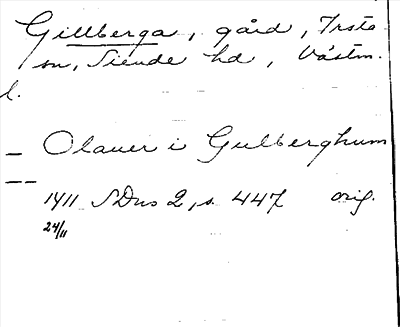 Gillberga, gård, Irsta
sn, Siende hd, Västm.
l.
— Olauer i Gulberghum
—— 1411 SDns 2, s. 447 orig.
24/11